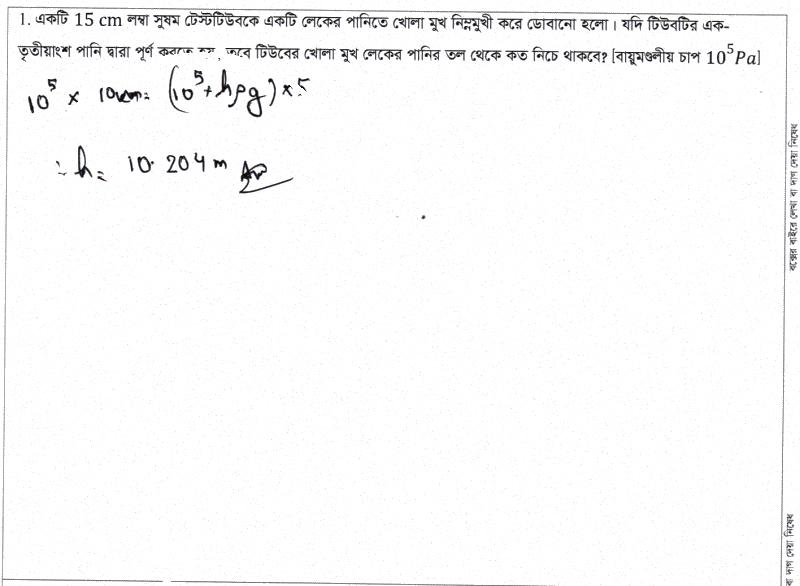 1. একটি 15 cm লম্বা সুষম টেস্টটিউবকে একটি লেকের পানিতে খোলা মুখ নিম্নমুখী করে ডোবানো হলো। যদি টিউবটির এক-
তৃতীয়াংশ পানি দ্বারা পূর্ণ টিউবের খোলা মুখ লেকের পানির তল থেকে কত নিচে থাকবে? [বায়ুমণ্ডলীয় চাপ 10⁵Pa]
10⁵ × 10 = (10⁵ + hρg) × 5
∴ h = 10.204 m
বক্সের বাইরে লেখা বা দাগ দেয়া নিষেধ
বা দাগ দেয়া নিষেধ